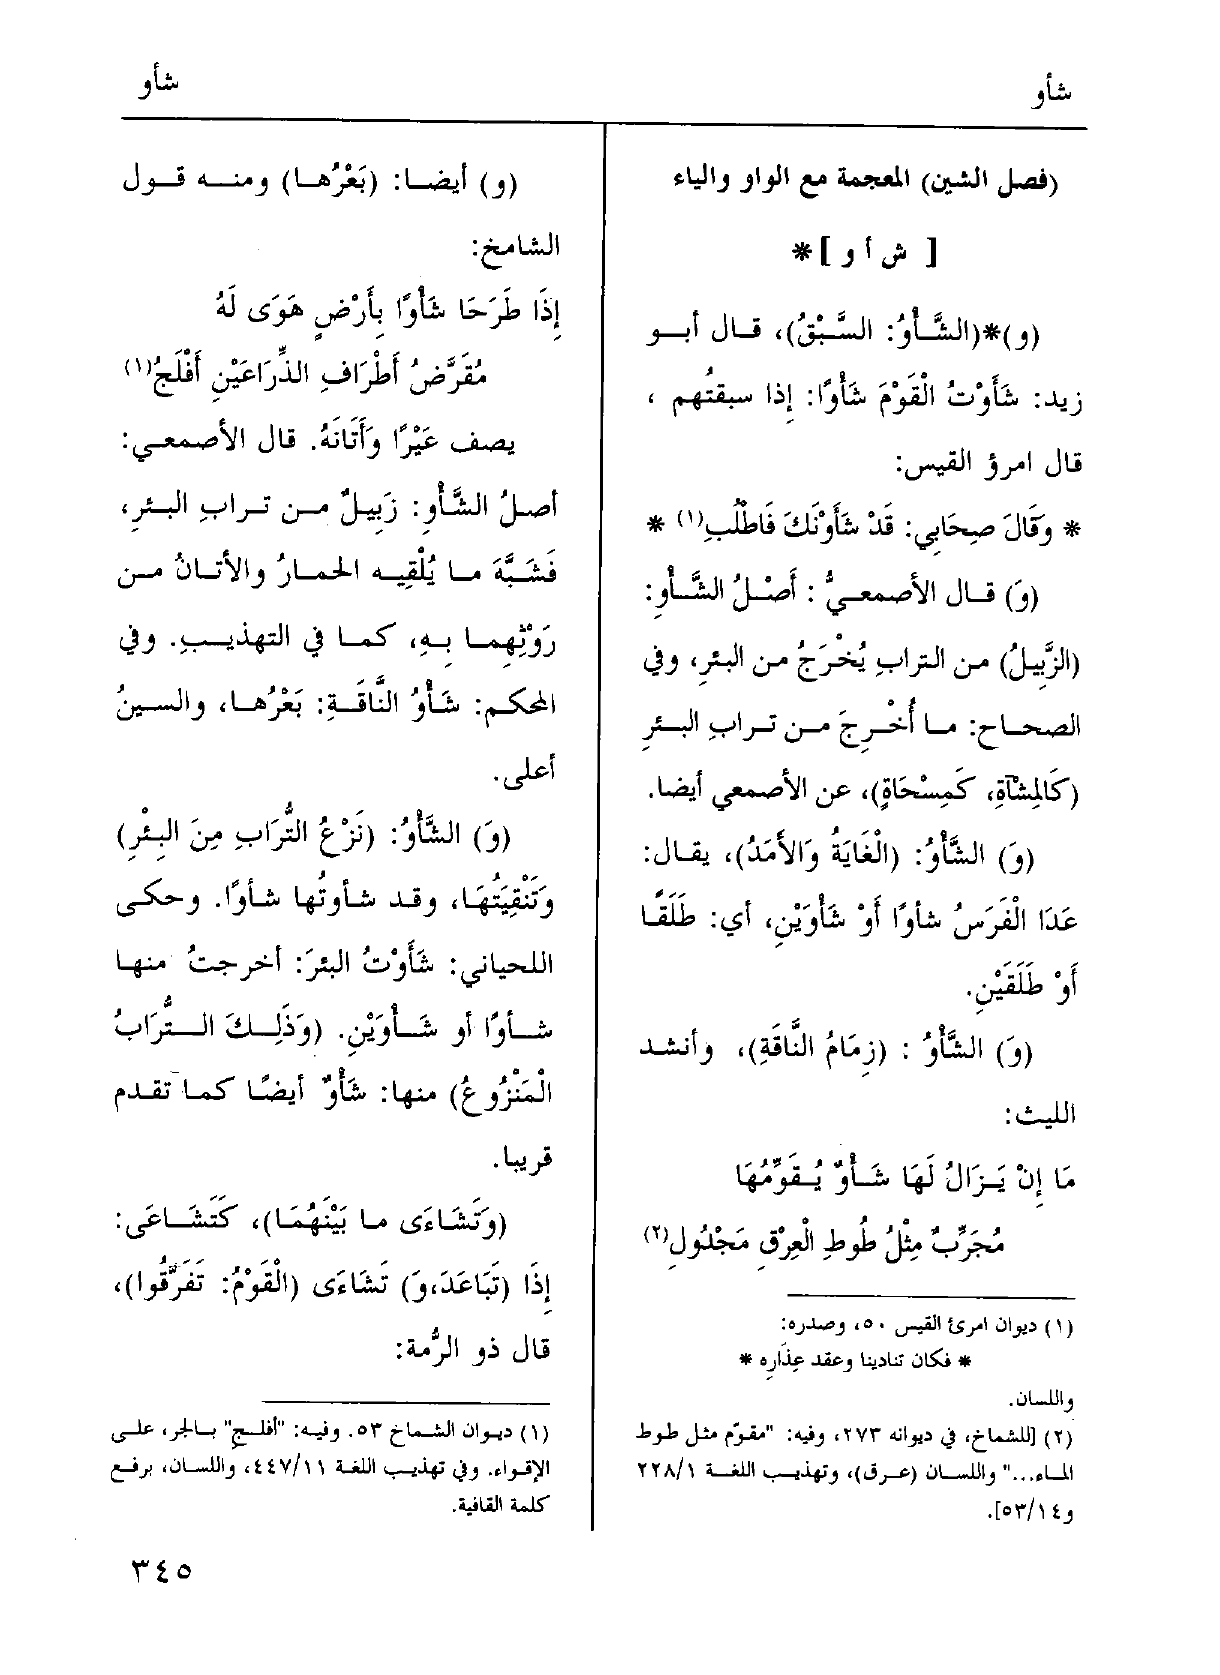 شأو
شأو
(فصل الشين) المعجمة مع الواو والياء
[ ش أ و ]*
(و)*(الشَّأْوُ: السَّبْقُ)، قال أبو
زيد: شَأَوْتُ الْقَوْمَ شَأْوًا: إذا سبقتُهم ،
قال امرؤ القيس:
* وَقَالَ صِحَابِي: قَدْ شَأَوْنَكَ فَاطْلُبِ(١) *
(وَ) قال الأصمعيُّ : أَصْلُ الشَّأْوِ:
(الزَّبِيلُ) من الترابِ يُخْرَجُ من البئرِ، وفي
الصحاح: ما أُخْرِجَ من ترابِ البئرِ
(كَالمِشْآةِ، كَمِسْحَاةٍ)، عن الأصمعي أيضا.
(وَ) الشَّأْوُ: (الْغَايَةُ وَالأَمَدُ)، يقال:
عَدَا الْفَرَسُ شأوًا أَوْ شَأْوَيْنِ، أي: طَلَقًا
أَوْ طَلَقَيْنِ.
(وَ) الشَّأْوُ : (زِمَامُ النَّاقَةِ)، وأنشد
الليث:
مَا إِنْ يَزَالُ لَهَا شَأْوٌ يُقَوِّمُهَا
مُجَرِّبٌ مِثْلُ طُوطِ الْعِرْقِ مَجْدُولِ(٢)
(١) ديوان امرئ القيس ٥٠، وصدره:
* فكان تنادينا وعقد عِذَارِه *
واللسان.
(٢) [للشماخ، في ديوانه ٢٧٣، وفيه: "مقوّم مثل طوط
الماء..." واللسان (عرق)، وتهذيب اللغة ٢٢٨/١
و٥٣/١٤].
(و) أيضا: (بَعْرُها) ومنه قول
الشامخ:
إِذَا طَرَحَا شَأْوًا بِأَرْضٍ هَوَى لَهُ
مُقَرَّضُ أَطْرَافِ الذِّرَاعَيْنِ أَفْلَجُ(١)
يصف عَيْرًا وَأَتَانَهُ. قال الأصمعي:
أصلُ الشَّأْوِ: زَبِيلٌ من ترابِ البئرِ،
فَشَبَّهَ ما يُلْقِيه الحمارُ والأتانُ من
رَوْثِهِما بِهِ، كما في التهذيبِ. وفي
المحكمِ: شَأْوُ النَّاقَةِ: بَعْرُها، والسينُ
أعلى.
(وَ) الشَّأْوُ: (نَزْعُ التُّرَابِ مِنَ البِئْرِ)
وَتَنْقِيَتُهَا، وقد شأوتُها شأوًا. وحكى
اللحياني: شَأَوْتُ البئرَ: أخرجتُ منها
شأوًا أو شَأْوَيْنِ. (وَذَلِكَ التُّرَابُ
الْمَنْزُوعُ) منها: شَأْوٌ أيضًا كما تقدم
قريبا.
(وَتَشَاءَى ما بَيْنَهُمَا)، كَتَشَاعَى:
إِذَا (تَبَاعَدَ،وَ) تَشَاءَى (الْقَوْمُ: تَفَرَّقُوا)،
قال ذو الرُّمة:
(١) ديوان الشماخ ٥٣. وفيه: "أفلجِ" بالجر، على
الإقواء. وفي تهذيب اللغة ٤٤٧/١١، واللسان، برفع
كلمة القافية.
٣٤٥